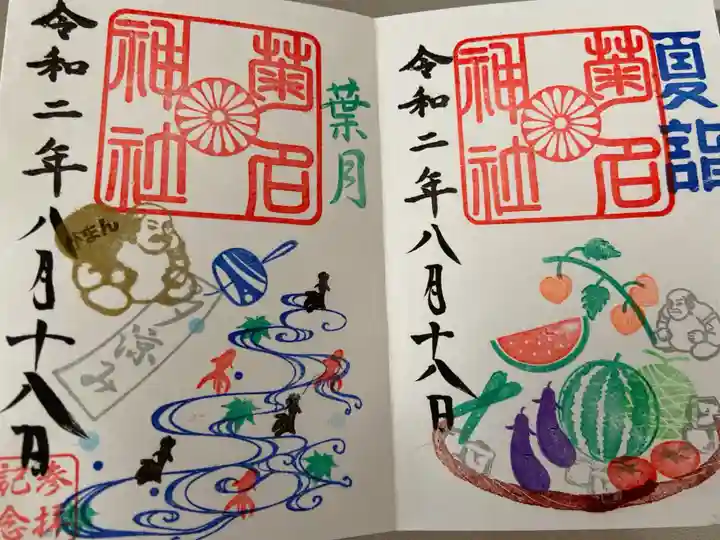 夏詣
菊名
神社
令和二年八月十八日
葉月
菊名
神社
令和二年八月十八日
がまん
参拝
記念